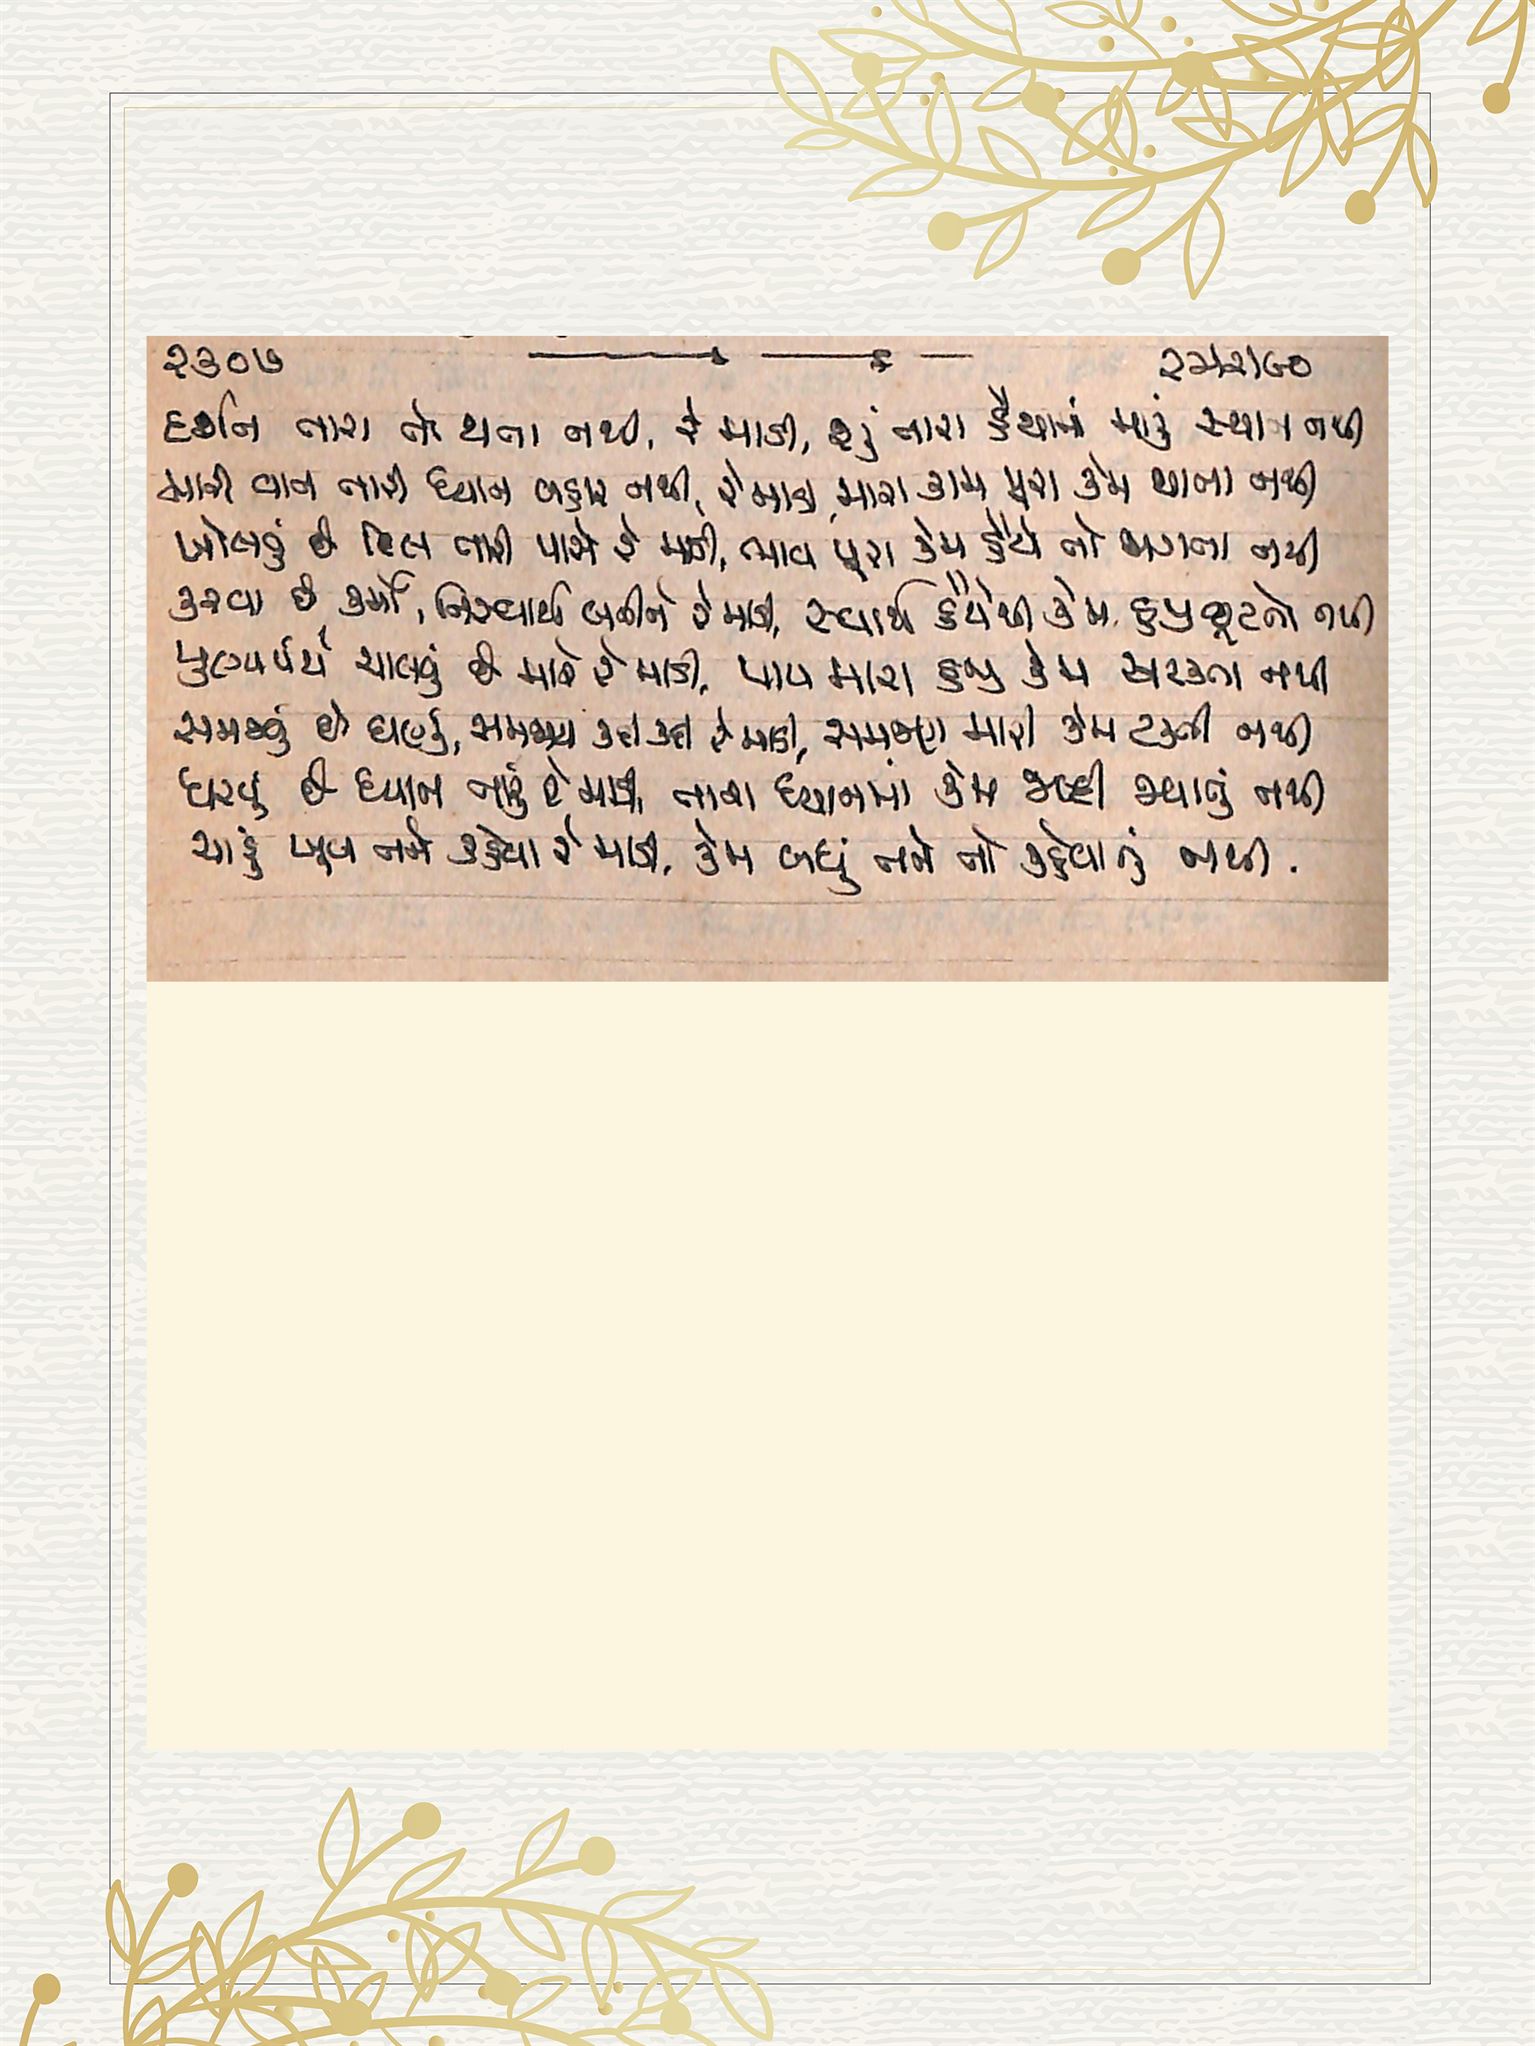 ૨૩૦૭ ૨૩/૨/૯૦
દર્શન તારા તો થતા નથી, રે માડી, શું તારા હૈયામાં મારું સ્થાન નથી
મારી વાત તારી ધ્યાન બહાર નથી, રે માડી, મારા કામ પૂરા કેમ થાતા નથી
ખોલવું છે દિલ તારી પાસે રે માડી, ભાવ પૂરા કેમ હૈયે તો જાગતા નથી
કરવા છે કર્મો, નિઃસ્વાર્થ બનીને રે માડી, સ્વાર્થ હૈયેથી કેમ હજુ છૂટતો નથી
પુણ્યપંથે ચાલવું છે મારે રે માડી, પાપ મારા હજુ કેમ અટકતા નથી
સમજવું છે ઘણું, સમજાય કદી કદી રે માડી, સમજણ મારી કેમ ટકતી નથી
ધરવું છે ધ્યાન તારું રે માડી, તારા ધ્યાનમાં કેમ જલ્દી જવાતું નથી
ચાહું ખૂબ તને કહેવા રે માડી, કેમ બધું તને તો કહેવાતું નથી.